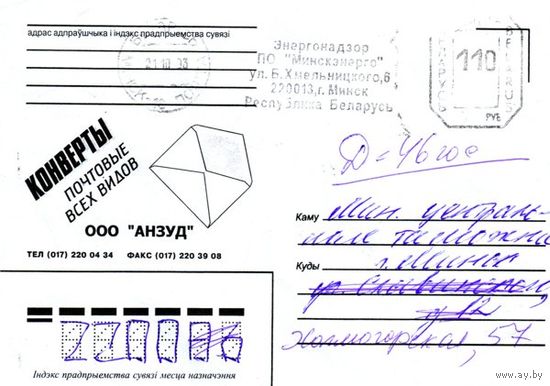 адрас адпраўшчыка і індэкс прадпрыемства сувязі
21 10 93
Энергонадзор
ПО "Минскэнерго"
ул.Б.Хмельницкого,6
220013,г.Минск
Республика Беларусь
BELARUS
110
РУБ
КОНВЕРТЫ
ПОЧТОВЫЕ
ВСЕХ ВИДОВ
ООО "АНЗУД"
ТЕЛ (017) 220 04 34 ФАКС (017) 220 39 08
Каму Мин. централь-
Куды г. Минск
Холмогорская, 57
Індэкс прадпрыемства сувязі месца назначэння
www.ay.by